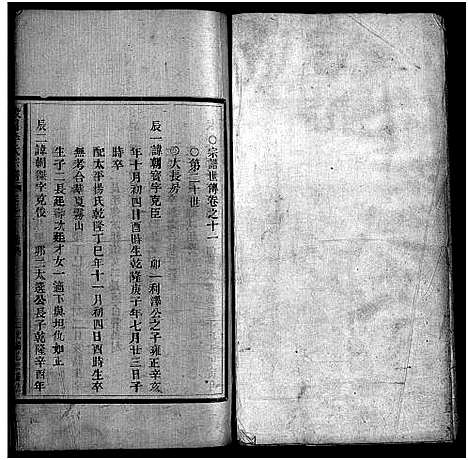 ○宗譜世傳卷之十一
○第三十世
○大長房
辰一諱朝寳字克臣　卯一利澤公之子雍正辛亥
年十月初四日酉時生乾隆庚子年七月廿三日子
時卒
配太平楊氏乾隆丁巳年十一月初四日酉時生卒
無考合葬夏霧山
生子二長起次起才女一適下與坦仇如正
辰二諱朝傑字克俊　卯三太選公長子乾隆辛酉年